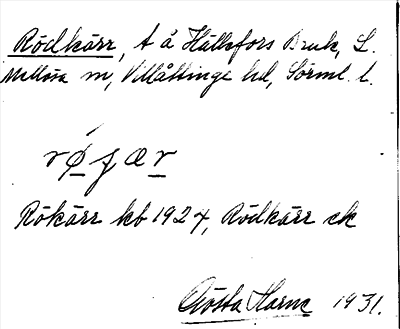 Rödkärr, t å Hällefors Bruk, L.
Mellösa sn, Villåttinge hd, Sörml. l.
røʃær
Rökärr kb 1924, Rödkärr ek
Gösta Harne 1931.